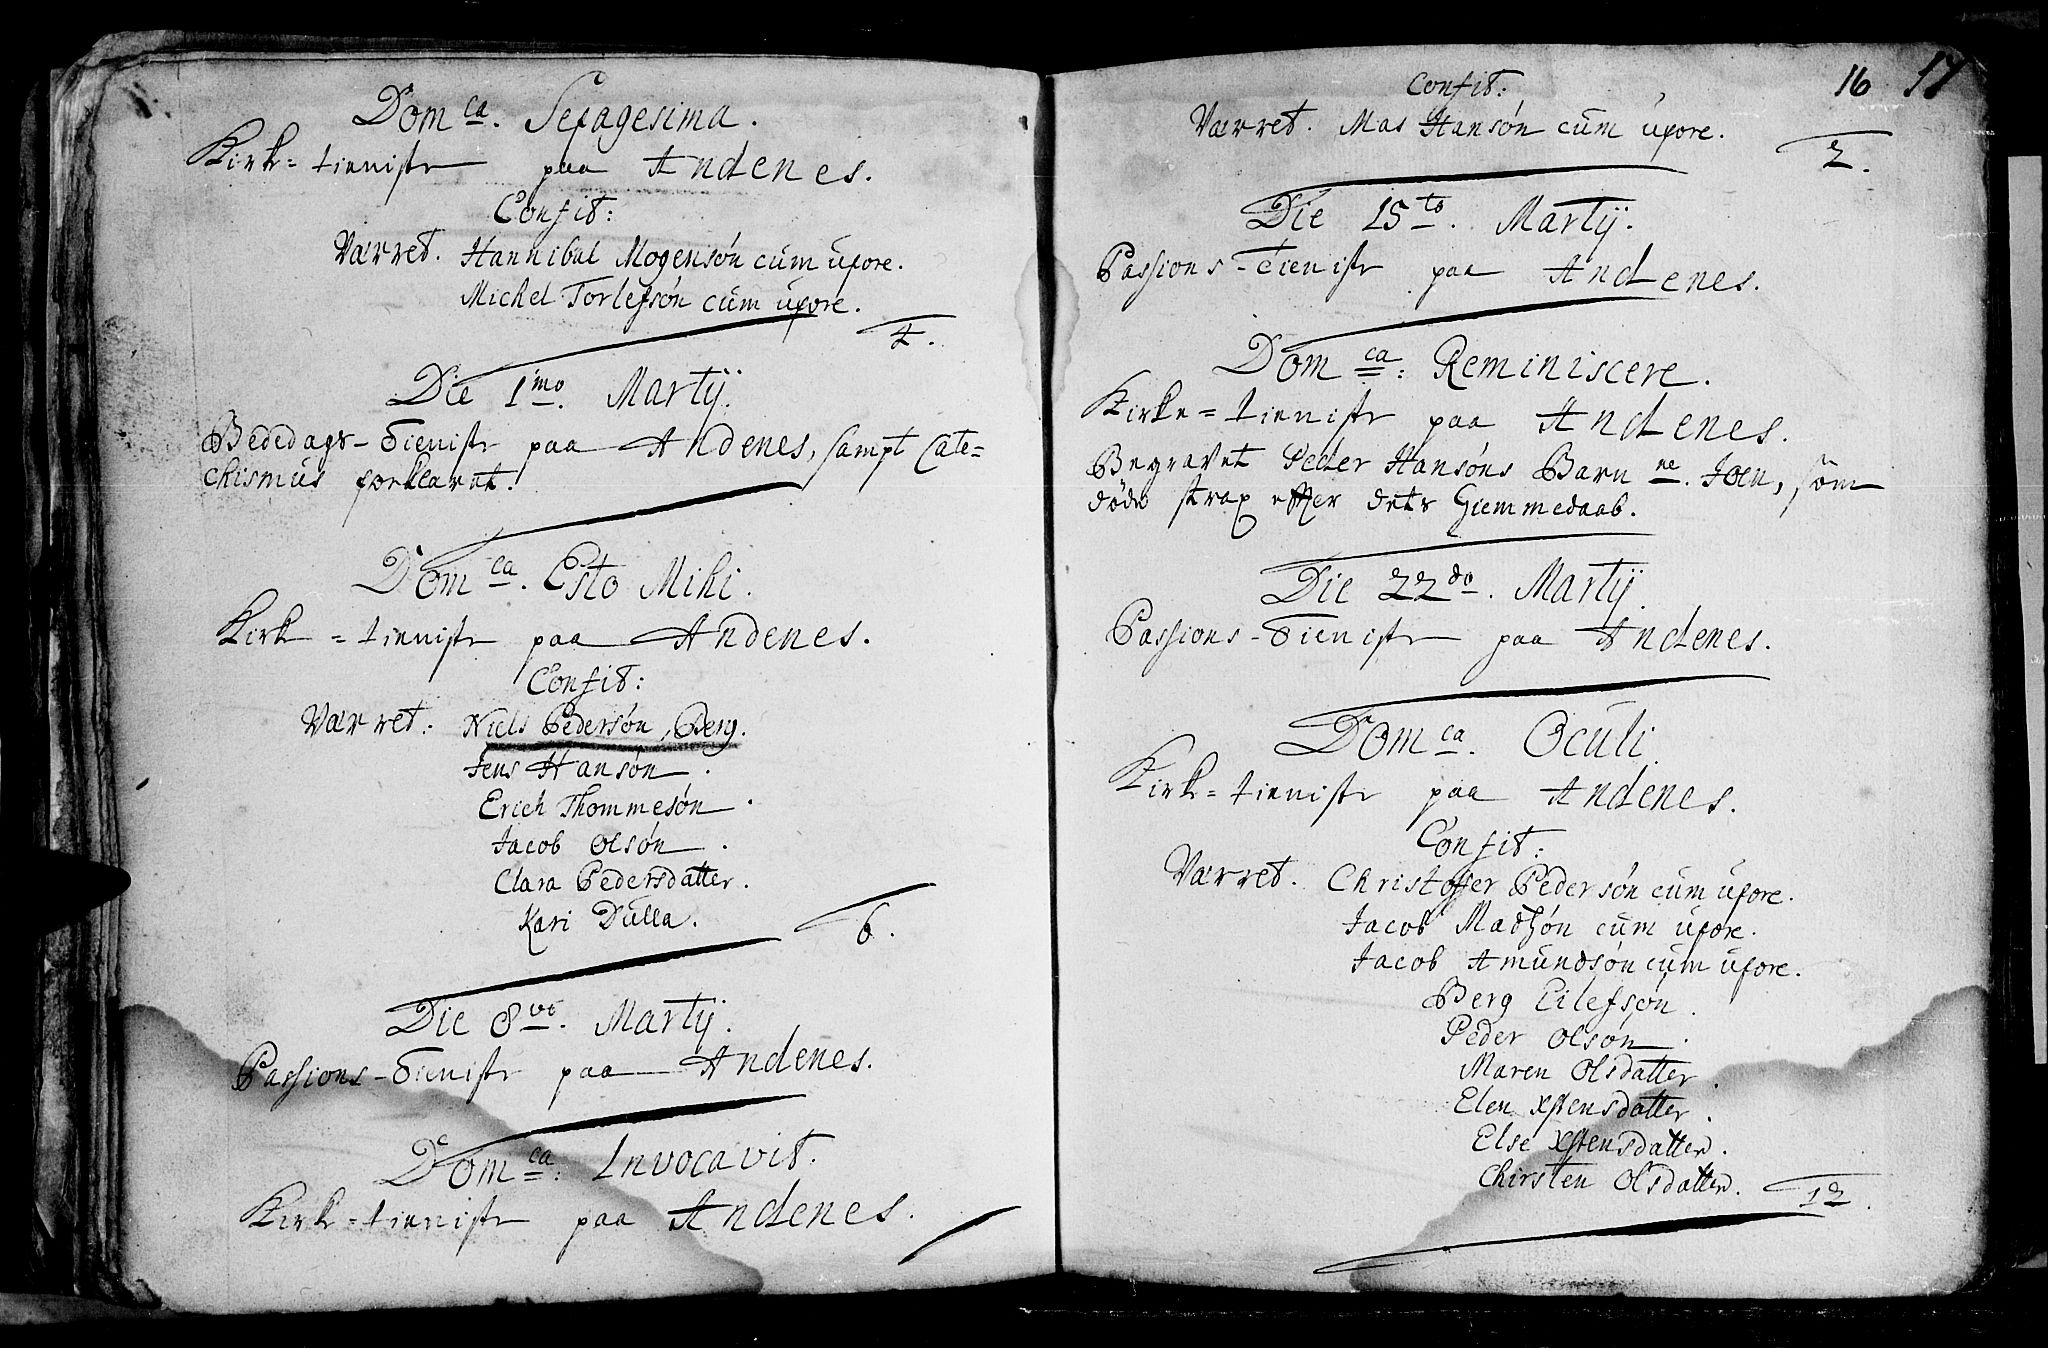 Dom ca. Sexagesima.
Kirk=tieniste paa Andenes.
Confit:
Værret. Hannibal Mogensøn cum uxore.
Michel Torlefsøn cum uxore.
4.
Die 1mo. Martij.
Bededags-Tieniste paa Andenes, sampt Cate=
chismus forklaret.
Dom ca. Esto Mihi.
Kirk=tieniste paa Andenes.
Confit:
Værret: Niels Pedersøn, Berg.
Jens Hansøn.
Erich Thommesøn.
Jacob Olsøn.
Clara Pedersdatter.
Kari Dulla.
6.
Die 8vo. Martij.
Passions-Tieniste paa Andenes.
Dom ca: Invocavit.
Kirk=tieniste paa Andenes.
16 17
Confit:
Værret. Mas Hansøn cum uxore.
2.
Die 15to. Martij.
Passions-Tieniste paa Andenes.
Dom ca: Reminiscere.
Kirke=tieniste paa Andenes.
Begravet Peder Hansøns Barn ne. Joen, som
døde strax effter dets Hiemmedaab.
Die 22do. Martij.
Passions-Tieniste paa Andenes.
Dom ca. Oculi.
Kirk=tieniste paa Andenes.
Confit:
Værret. Christoffer Pedersøn cum uxore.
Jacob Madsøn cum uxore.
Jacob Amundsøn cum uxore.
Berg Eilefsøn.
Peder Olsøn.
Maren Olsdatter.
Elen Xstensdatter.
Else Xstensdatter.
Chirsten Olsdatter.
12.